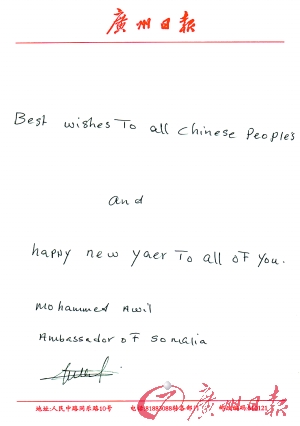 廣州日報
Best wishes To all Chinese People's
and
happy new yaer To all of you.
Mohammed Awil
Ambassador of Somalia
地址:人民中路同乐路10号
电话:81883088转各部门
廣州日報